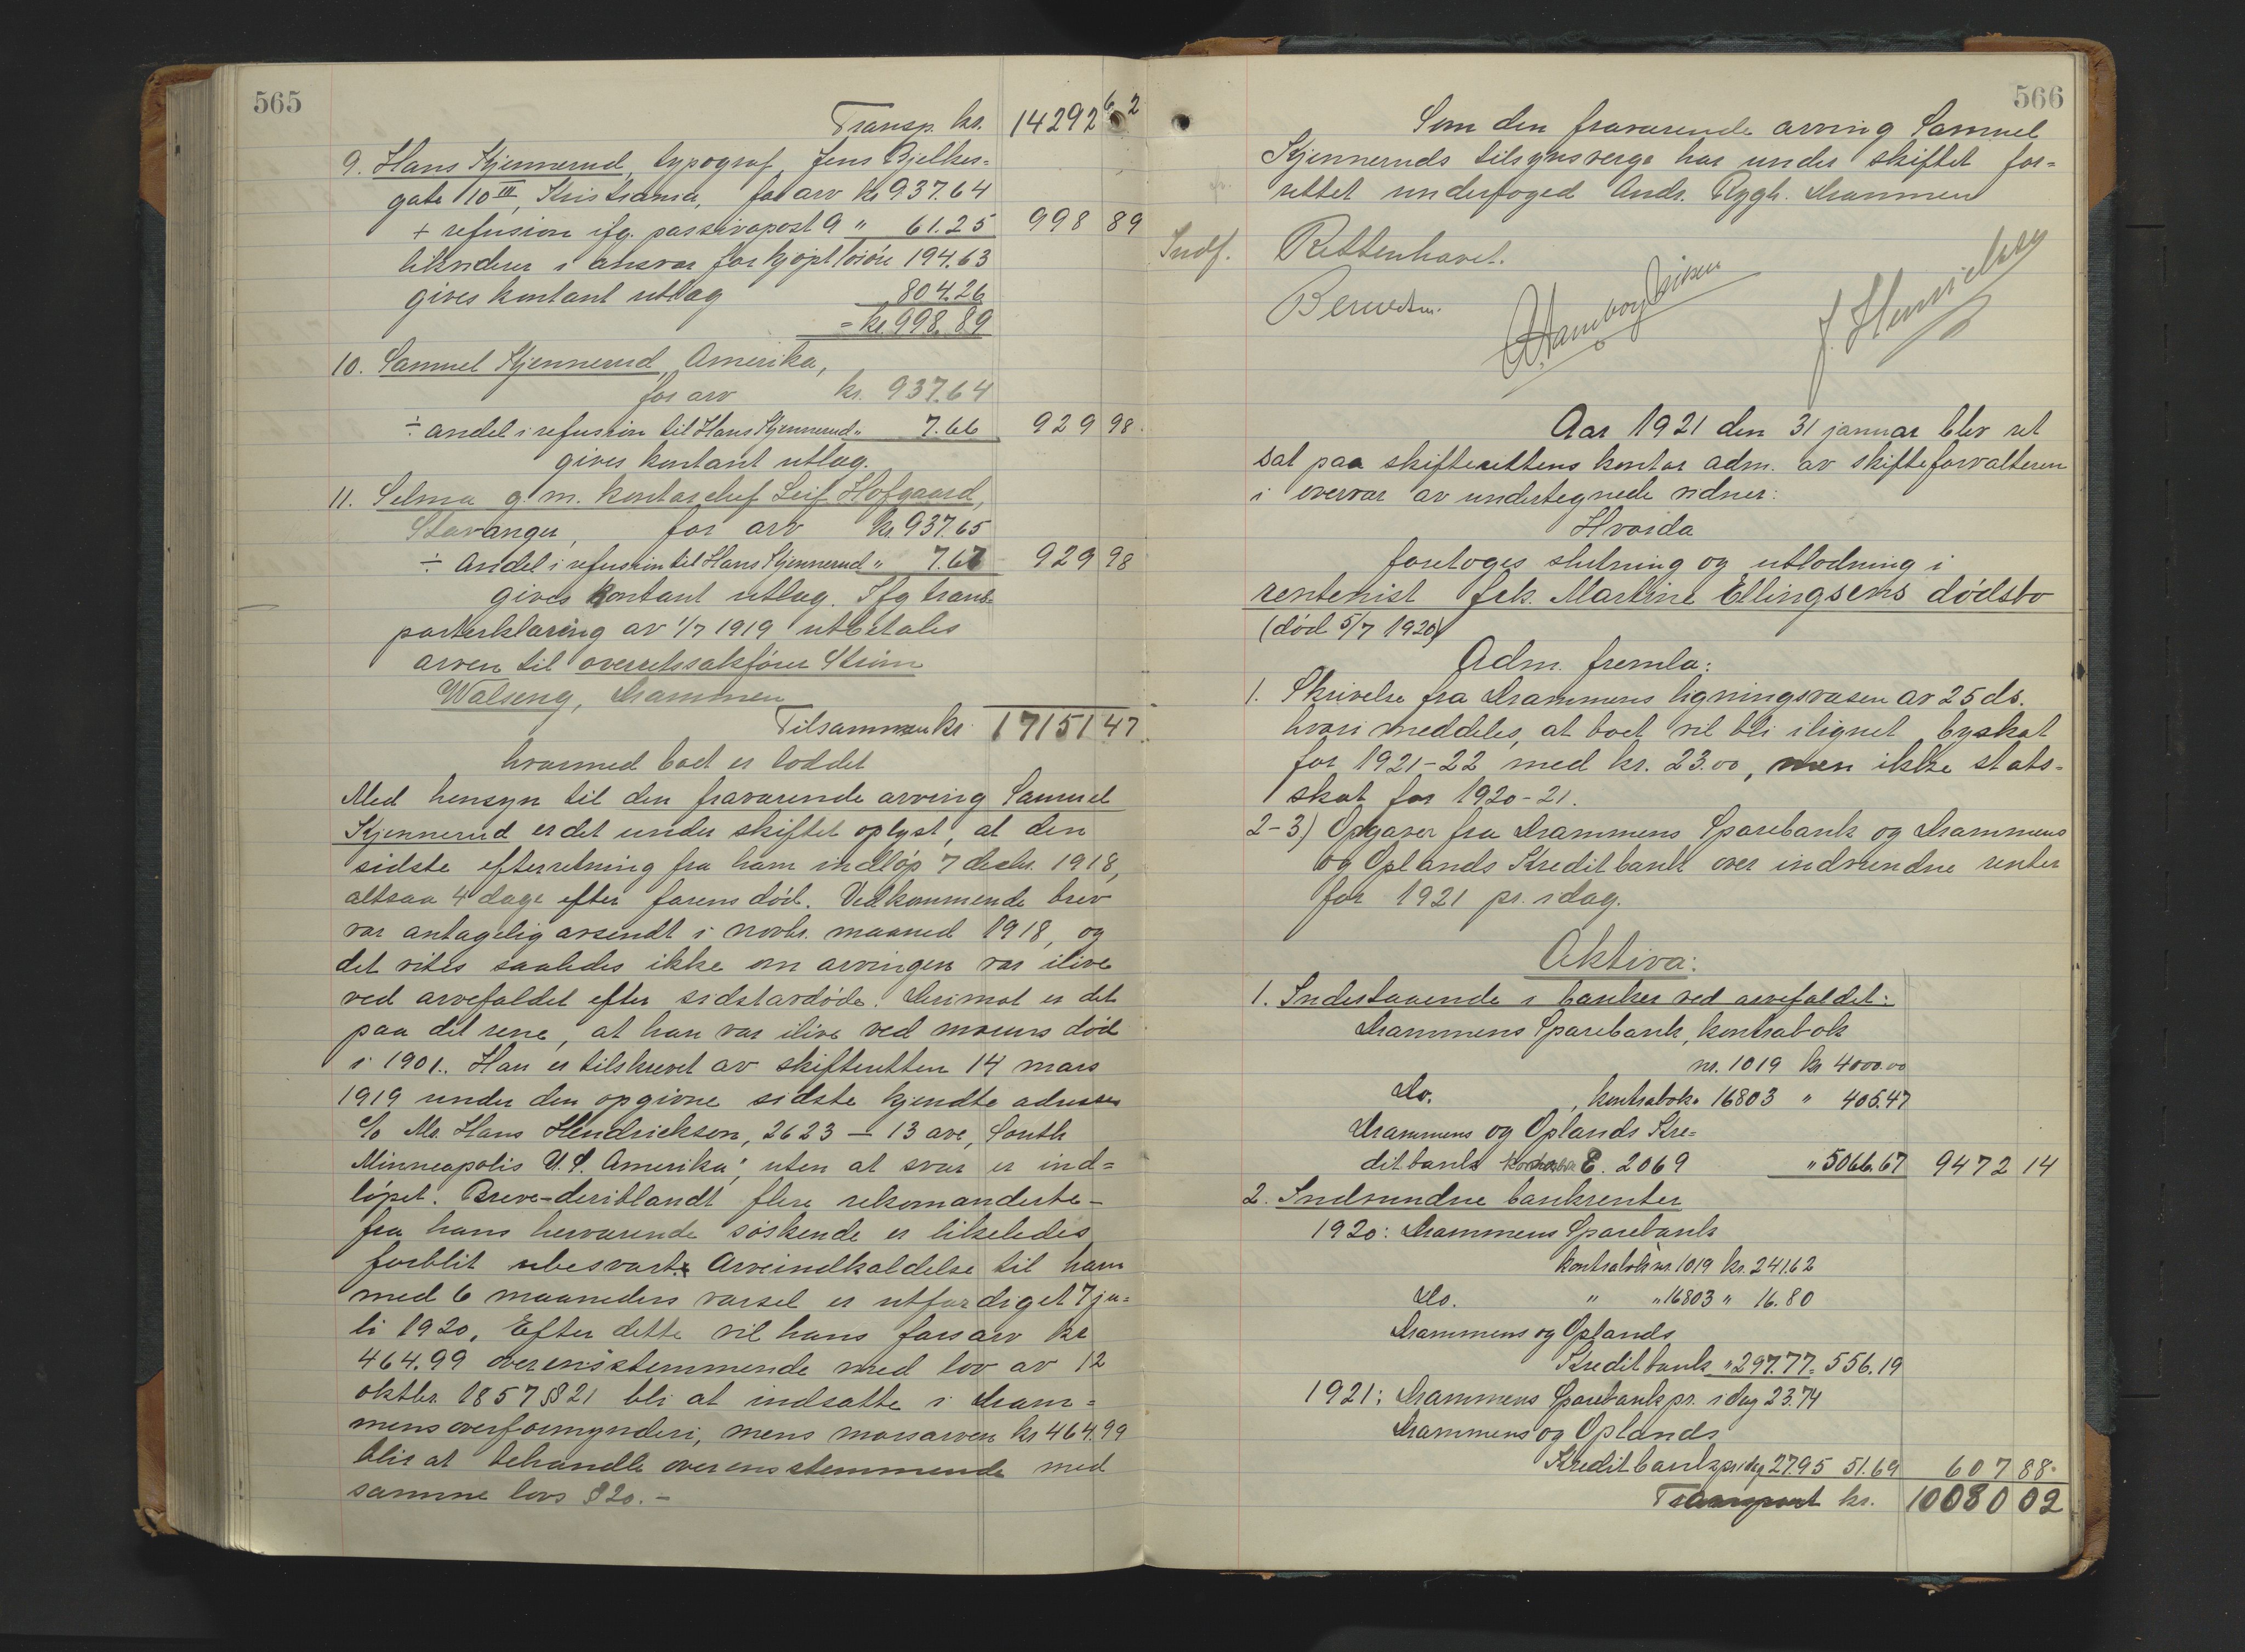 565
Transp. kr. 14292 62
9. Hans Kjennerud, typograf, Jens Bjelkes=
gate 10 III, Kristiania, for arv kr 937.64
+ refusion ifg. passivapost 9 " 61.25 998 89
likviderer i ansvar for kjøpt løsøre 194.63
gives kontant utlæg 804.26
= kr. 998.89
10. Samuel Kjennerud, Amerika,
for arv kr. 937.64
÷ andel i refusion til Hans Kjennerud " 7.66 929 98.
gives kontant utlæg.
11. Selma g. m. kontorchef Leif Hofgaard,
Stavanger, for arv kr 937.65
÷ Andel i refusion til Hans Kjennerud " 7.67 929 98
gives kontant utlæg. Ifg trans=
porterklæring av 1/7 1919 utbetales
arven til overretssakfører Strøm
Walseng, Drammen
Tilsammen kr. 17151 47
hvormed boet er loddet
Med hensyn til den fraværende arving Samuel
Kjennerud er det under skiftet oplyst, at den
sidste efterretning fra ham indløp 7 decbr. 1918,
altsaa 4 dage efter farens død. Vedkommende brev
var antagelig avsendt i novbr. maaned 1918, og
det vites saaledes ikke om arvingen var ilive
ved arvefaldet efter sidstavdøde. Derimot er det
paa det rene, at han var ilive ved morens død
i 1901. Han er tilskrevet av skifteretten 14 mars
1919 under den opgivne sidste kjendte adresse
c/o Mr. Hans Hendrickson, 2623 – 13 ave, South
Minneapolis U.S. Amerika," uten at svar er ind=
løpet. Breve – deriblandt flere rekomanderte –
fra hans herværende søskende er likeledes
forblit ubesvart. Arveindkaldelse til ham
med 6 maaneders varsel er utfærdiget 7 ju=
li 1920. Efter dette vil hans farsarv kr
464.99 overensstemmende med lov av 12
oktbr. 1857 § 21 bli at indsætte i Dram=
mens overformynderi, mens morsarven kr 464.99
blir at behandle overensstemmende med
samme lovs § 20. –
566
Som den fraværende arving Samuel
Kjenneruds tilsynsverge har under skiftet for=
rettet underfoged Andr. Rygh. Drammen
Indf. Retten hævet.
Aar 1921 den 31 januar blev ret
sat paa skifterettens kontor adm. av skifteforvalteren
i overvær av undertegnede vidner:
Hvorda
foretoges slutning og utlodning i
rentenist frk. Martine Ellingsens dødsbo
(død 5/7 1920)
Adm. fremla:
1. Skrivelse fra Drammens ligningsvæsen av 25 ds.
hvori meddeles, at boet vil bli ilignet byskat
for 1921-22 med kr. 23.00, men ikke stats=
skat for 1920-21.
2-3) Opgaver fra Drammens Sparebank og Drammens
og Oplands Kreditbank over indvundne renter
for 1921 pr. idag.
Aktiva:
1. Indestaaende i banker ved arvefaldet:
Drammens Sparebank, kontrabok
nr. 1019 kr 4000.00
Do. , kontrabok. 16803 " 405.47
Drammens og Oplands Kre=
ditbank E. 2069 " 5066.67 9472 14
2. Indvundne bankrenter
1920: Drammens Sparebank
kontrabok nr. 1019 kr. 241.62
Do. " " 16803 " 16.80
Drammens og Oplands
Kreditbank " 297.77 = 556.19
1921: Drammens Sparebank pr. idag 23.74
Drammens og Oplands
Kreditbank pr idag 27.95 51.69 607 88.
Transport kr. 10080 02